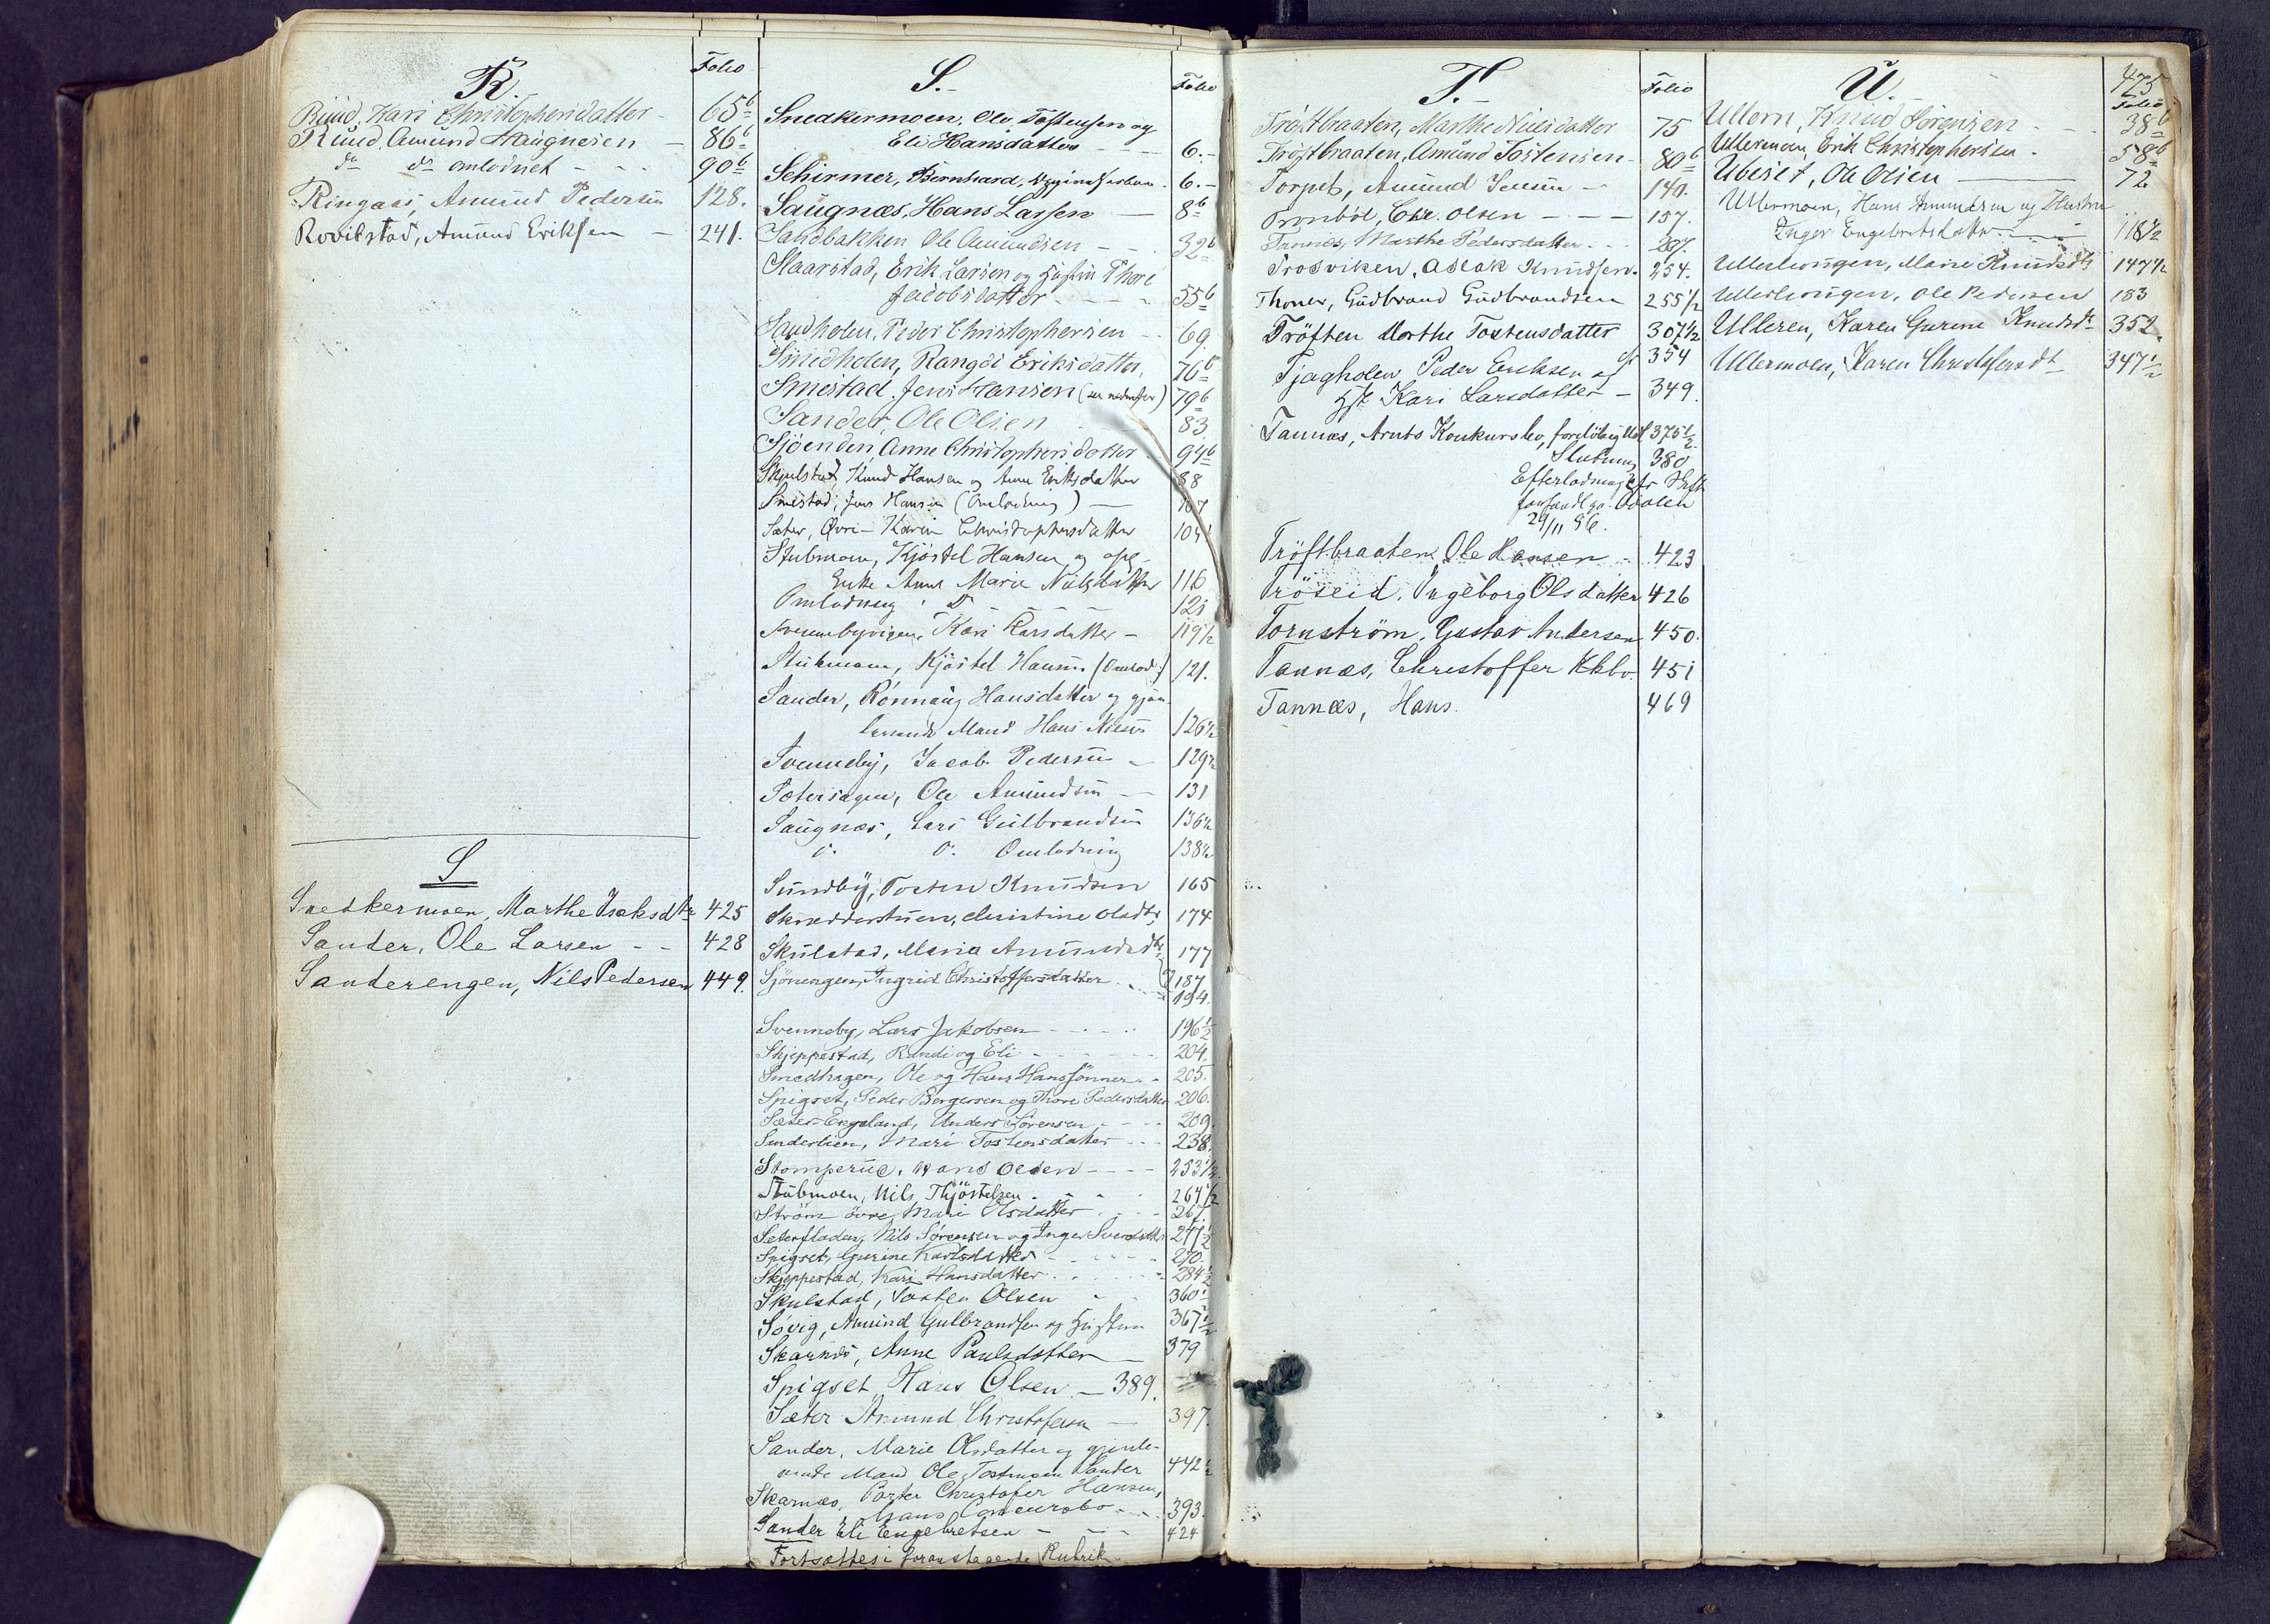 R.
Folio
Rüüd, Kari Christophersdatter - 65 b
Ruud, Amund Haugnesen - 86 b
do do omlodnet - - - 90 b
Ringaas, Amund Pedersen 128.
Rovilstad, Amund Eriksen - 241.
S
Snedkermoen, Marthe Isaksdtr 425
Sander, Ole Larsen - - 428
Sanderengen, Nils Pedersen 449.
S.-
Folio
Snedkermoen, Ole Tostensen og
Eli Hansdatter - - 6.-
Schirmer, Bernhard, 6.-
Saugnæs, Hans Larsen - 8 b
Sandbakken Ole Amundsen - - 32 b
Slaarstad, Erik Larsen og Hustru Thore
Jacobsdatter - - - 55 b
Sandholen, Peder Christophersen - - 69.
Smedholen, Rangdi Eriksdatter, 76 b
Smestad, Jens Hansen (se nedenfor) 79 b
Sander, Ole Olsen 83
Sjöenden, Anne Christophersdatter 94 b
Skjulstad, Knud Hansen og Anne Eriksdatter 88
Smestad, Jens Hansen (Omlodning) - 107
Sæter, Øvre - Karin Christophersdatter 104
Stubmoen, Kjöstel Hansen og
Enke Anne Marie Nielsdatter 116
Omlodning 121
Svennebyvigen, Kari Larsdatter - 119 1/2
Stubmoen, Kjöstel Hansen (Omlod:) 121.
Sander, Rönnaug Hansdatter og gjen-
levende Mand Hans Nielsen 126 1/2
Svenneby, Jacob Pedersen - 129 1/2
Sætersagen, Ole Amundsen - - 131
Saugnæs, Lars Gulbrandsen 136 1/2
do. do. Omlodning 138 1/2
Sundby, Tosten Knudsen 165
Skrædderstuen, Christine Olsdtr 174
Skulstad, Maria Amundsdtr 177
Sjönengen, Ingrid Christoffersdatter - - 187
194.
Svenneby, Lars Jakobsen - - - - 196 1/2
Skjeppestad, Randi og Eli - - - - 204.
Smedhagen, Ole og Hans Hanssönner - - 205.
Spigset, Peder Bergersen og Thore Pedersdatter 206.
Sæter-Engeland, Anders Sörensen - - - 209.
Sanderlien, Mari Tostensdatter - - - 238.
Stomperud, Hans Olsen - - - - 253 1/2.
Stubmoen, Nils Thjöstelsen - - - 264 1/2
Ström övre Mari Olsdatter - - - 267.
Seterfladen, Nils Sörensen og Inger Sversdatter 271 1/2
Spigset, Gurine Karlsdatter - - - - 290.
Skjeppestad, Kari Hansdatter - - - - 284 1/2
Skulstad, Tosten Olsen - - 360 1/2
Sörig, Amund Gulbrandsen og Hustru 367 1/2
Skarnæs, Anne Paulsdatter - 379
Spigset, Hans Olsen - 389.
Sæter Amund Christofersen - 397.
Sander, Marie Olsdatter og gjenle-
vende Mand Ole Tostensen Sander 442 1/2
Skarnæs, Porter Christofer Hansen,
hans Concursbo - - 393.
Sander Eli Engebretsen - - - 424
Fortsættes i foranstaaende Rubrik
T.-
Folio
Tröftbraaten, Marthe Nielsdatter 75
Tröftbraaten, Amund Tostensen - 80 b
Torpet, Amund Jensen - 140.
Tronböl, Chr. Olsen - - - 157.
Tannæs, Marthe Pedersdatter - - - 207.
Trosviken, Aslak Knudsen. 254.
Thoner, Gudbrand Gudbrandsen 255 1/2
Tröften Marthe Tostensdatter 307 1/2
Tjagholen Peder Eriksen og 354
Hst Kari Larsdatter - 349.
Tannæs, Arnts Konkursbo, foreløbig Udl 375 1/2.
Slutning 380
Efterlodning efr Skift
29/11 86.
Tröftbraaten, Ole Hansen - - 423
Tröseid, Ingeborg Olsdatter 426
Tornström, Gustav Andersen 450.
Tannæs, Christoffer Kkbo. 451
Tannæs, Hans. 469
U.-
475
Folio
Ullern, Knud Sörensen - - - 38 b
Ullermoen, Erik Christophersen - 58 b
Uberset, Ole Olsen - 72
Ullermoen, Hans Amundsen og Hustru
Inger Engebretsdatter - - - 118 1/2
Ullerleungen, Marie Knudsdtr 147 1/2
Ullerleungen, Ole Pedersen 183
Ulleren, Karen Gurine Knudsdtr 352.
Ullermoen, Karen Christofersdt 347 1/2